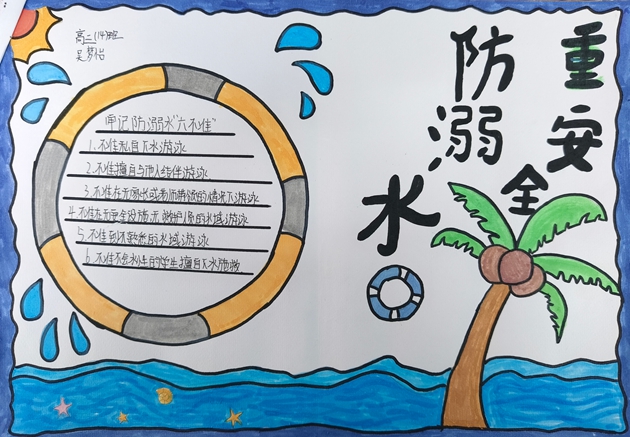 高二(14)班
吴梦怡
重安全
防溺水
牢记防溺水"六不准"
1.不准私自下水游泳
2.不准擅自与他人结伴游泳
3.不准在无家长或教师带领的情况下游泳
4.不准在无安全设施、无救护人员的水域游泳
5.不准到不熟悉的水域游泳
6.不准不会水性的学生擅自下水施救